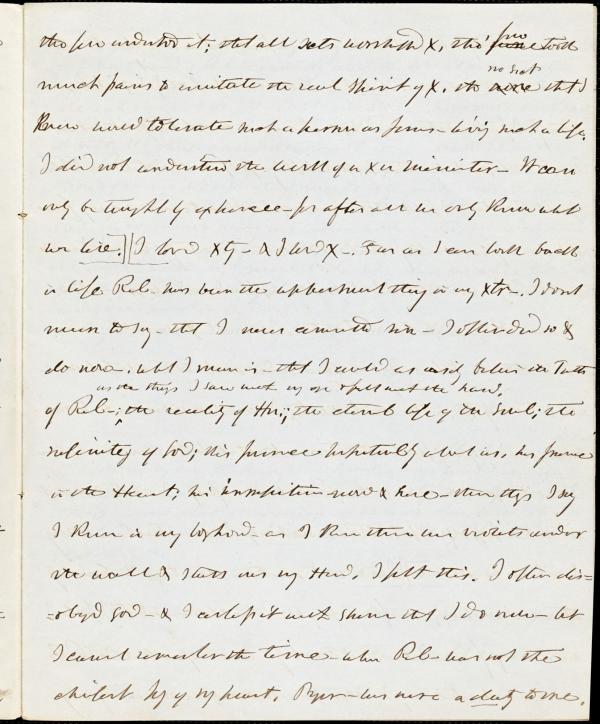 tho few understood it; that all sects worshipd X, tho' few took
much pains to imitate the real Spirit of X, tho no sect that I
Knew would tolerate such a person as Jesus – living such a life.
I did not understand the work of a Xn minister – It can
only be taught by experience – for after all we only Know what
we live.] || I lovd Xty – & I lovd X –. Far as I can look back
in life Rel– has been the uppermost thing in my Xtr–. I dont
mean to say – that I never committed sin – I often did so &
do now. what I mean is – that I could as easily believe the Truths
as the things I saw with my eye & felt with the hand,
of Rel–; the reality of Hvn; the eternal life of the Soul; the
infinity of God; his presence perpetually about us, his presence
in the Heart; his inspiration now & here – these things I say
I Knew in my boyhood – as I Knew there was violets under
the wall & stars over my Head. I felt this. I often dis=
=obeyd God – & I confess it with shame that I do now – but
I cannot remember the time – when Rel– was not the
chiefest joy of my heart. Prayer – was never a duty to me.